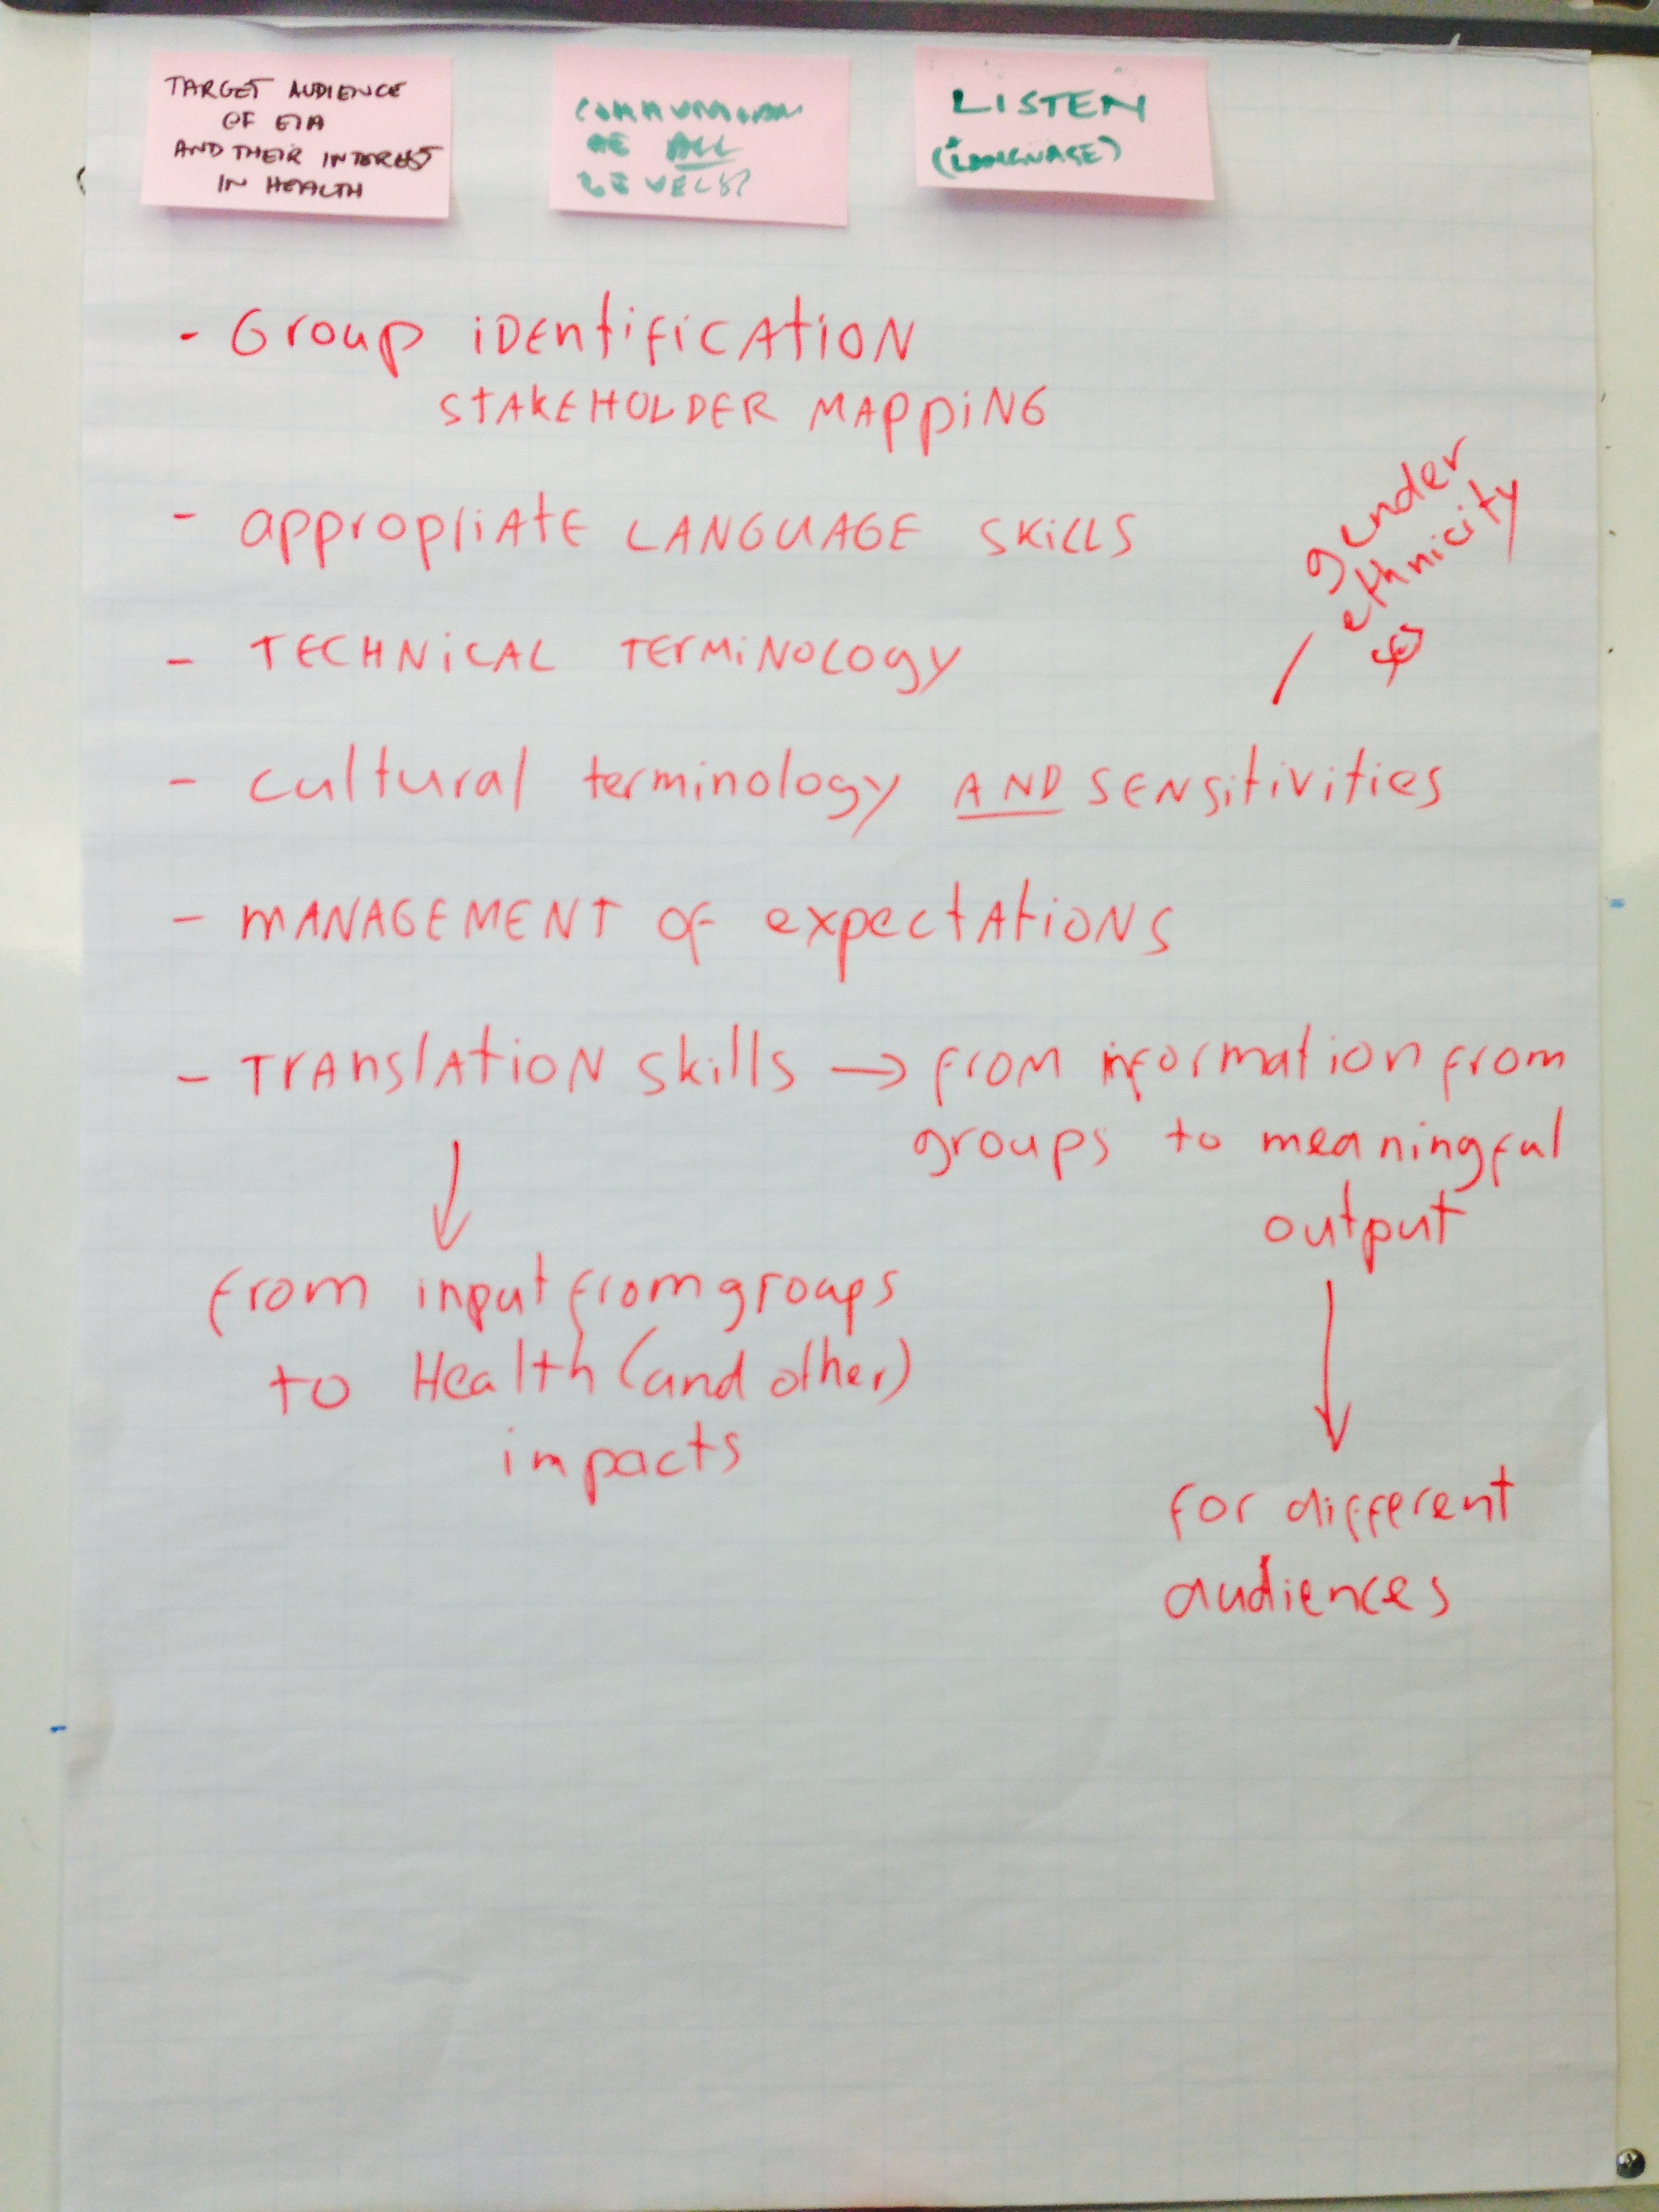 TARGET AUDIENCE
OF EIA
AND THEIR INTEREST
IN HEALTH
ALL
LEVELS?
LISTEN
(LANGUAGE)
- Group identification
STAKEHOLDER MAPPING
- appropriate LANGUAGE SKILLS
gender
ethnicity
- TECHNICAL TERMINOLOGY
- cultural terminology AND SENSITIVITIES
- MANAGEMENT OF expectations
- Translation skills → from information from
groups to meaningful
output
from input from groups
to Health (and other)
impacts
for different
audiences